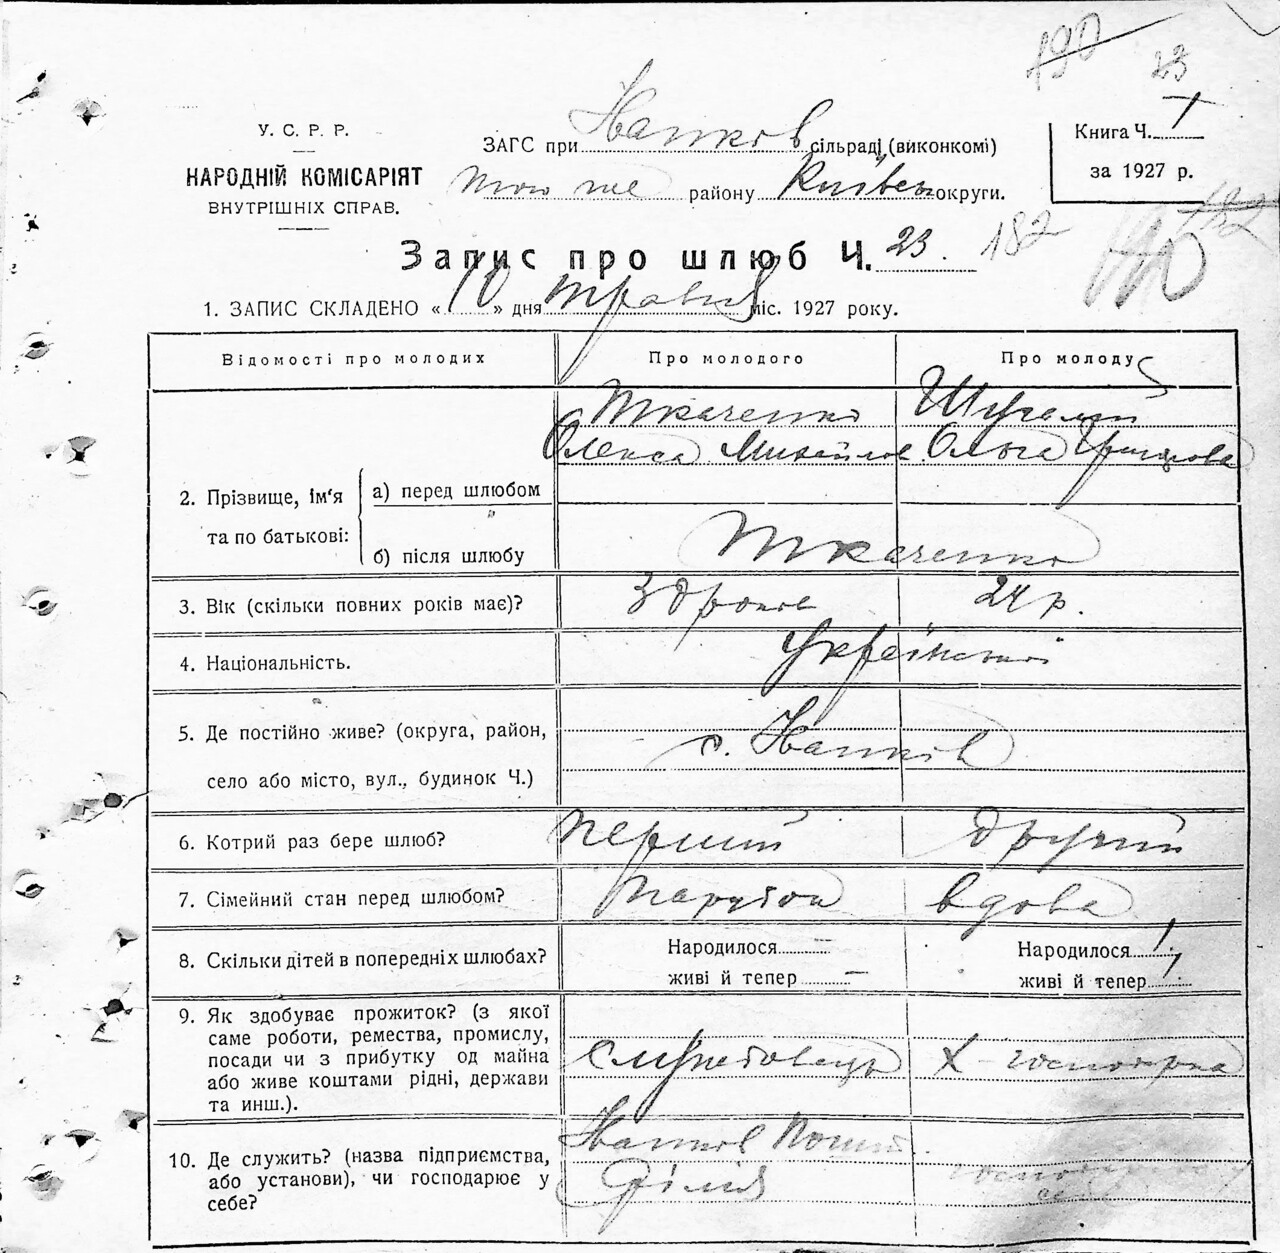 190 23
У. С. Р. Р.
НАРОДНІЙ КОМІСАРІЯТ
ВНУТРІШНІХ СПРАВ.
ЗАГС при Іванков сільраді (виконкомі)
того же району Київськ округи.
Книга Ч. 1
за 1927 р.
182
Запис про шлюб Ч. 23. 182
1. ЗАПИС СКЛАДЕНО « 10 » дня травня міс. 1927 року.
Відомості про молодих Про молодого Про молоду
Ткаченко
Олекса Михайлов. Ольга
2. Прізвище, ім'я та по батькові:
а) перед шлюбом
б) після шлюбу Ткаченко
3. Вік (скільки повних років має)? років 24 р.
4. Національність. Українські
5. Де постійно живе? (округа, район,
село або місто, вул., будинок Ч.) с. Іванків
6. Котрий раз бере шлюб? перший другий
7. Сімейний стан перед шлюбом? парубок вдова
8. Скільки дітей в попередніх шлюбах? Народилося — Народилося 1
живі й тепер — живі й тепер 1
9. Як здобуває прожиток? (з якої
саме роботи, ремества, промислу,
посади чи з прибутку од майна
або живе коштами рідні, держави
та инш.). службовець
10. Де служить? (назва підприємства,
або установи), чи господарює у
себе? Іванков